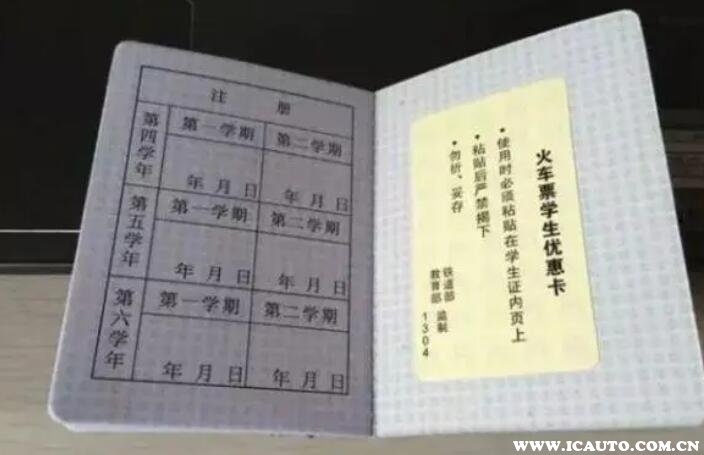 注 册
第四学年
第一学期
第二学期
年 月 日
年 月 日
第五学年
第一学期
第二学期
年 月 日
年 月 日
第六学年
第一学期
第二学期
年 月 日
年 月 日
火车票学生优惠卡
• 使用时必须粘贴在学生证内页上
• 粘贴后严禁揭下
• 勿折、妥存
铁道部
教育部 监制
1304
WWW.ICAUTO.COM.CN